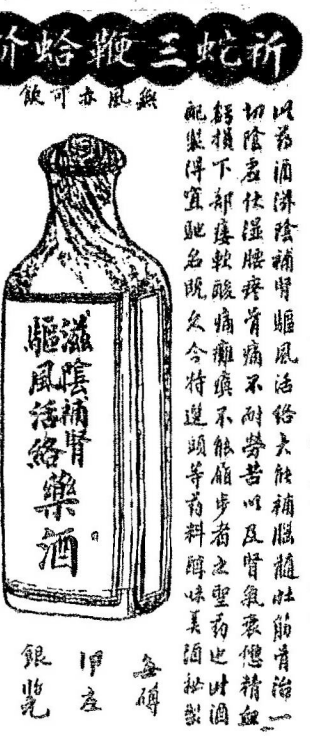 祈蛇三鞭蛤
無風亦可飲
以药酒滋陰補腎驅風活絡大能補腦髓壯筋骨治一
切陰虚伏湿腰疼骨痛不耐勞苦以及腎氣衰憊精血
虧損下部痿軟酸痛癱瘓不能顧步者之聖药也此酒
配製得宜馳名既久今特選頭等药料醇味美酒秘製
滋陰補腎
驅風活絡
藥酒
每磚
甲庄
銀